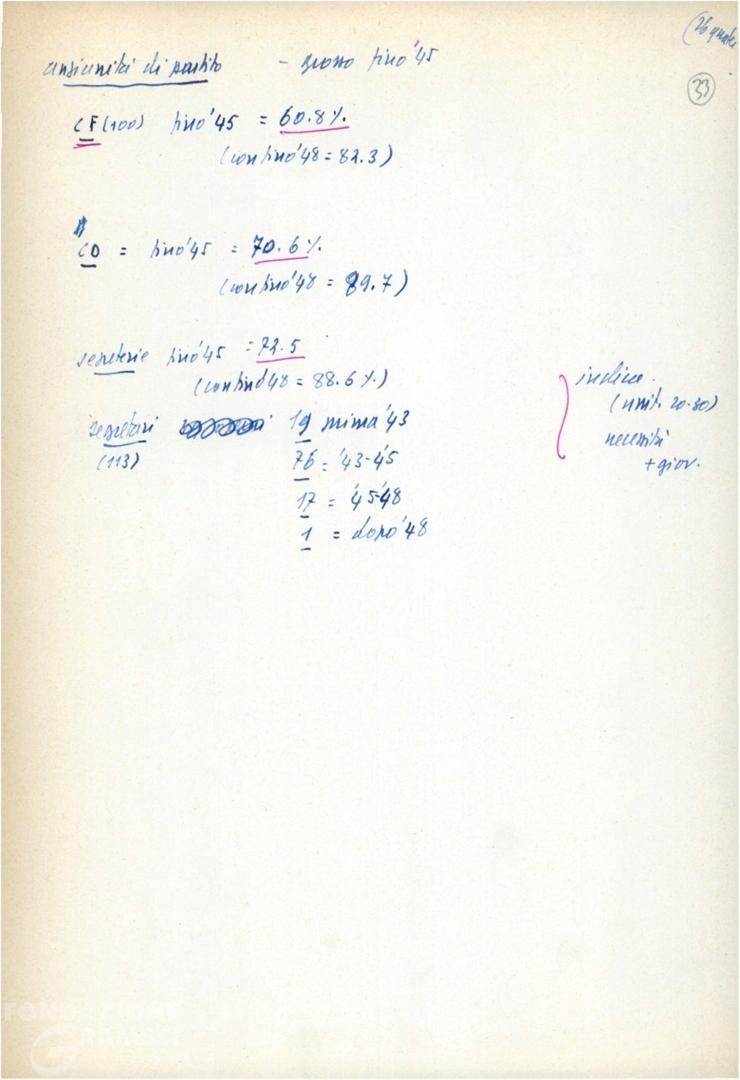 (26
33
anzianità di partito - grosso fino '45
CF (100) fino '45 = 60.8%
(con fino '48 = 82.3)
CD = fino '45 = 70.6%
(con fino '48 = 89.7)
segreterie fino '45 = 72.5
(con fino '48 = 88.6%)
segretari 19 prima '43
(113) 76 = '43-45
17 = '45-48
1 = dopo '48
indice.
(unit. 20-30)
necessità
+ giov.
FONDAZIONE
GRAMSCI